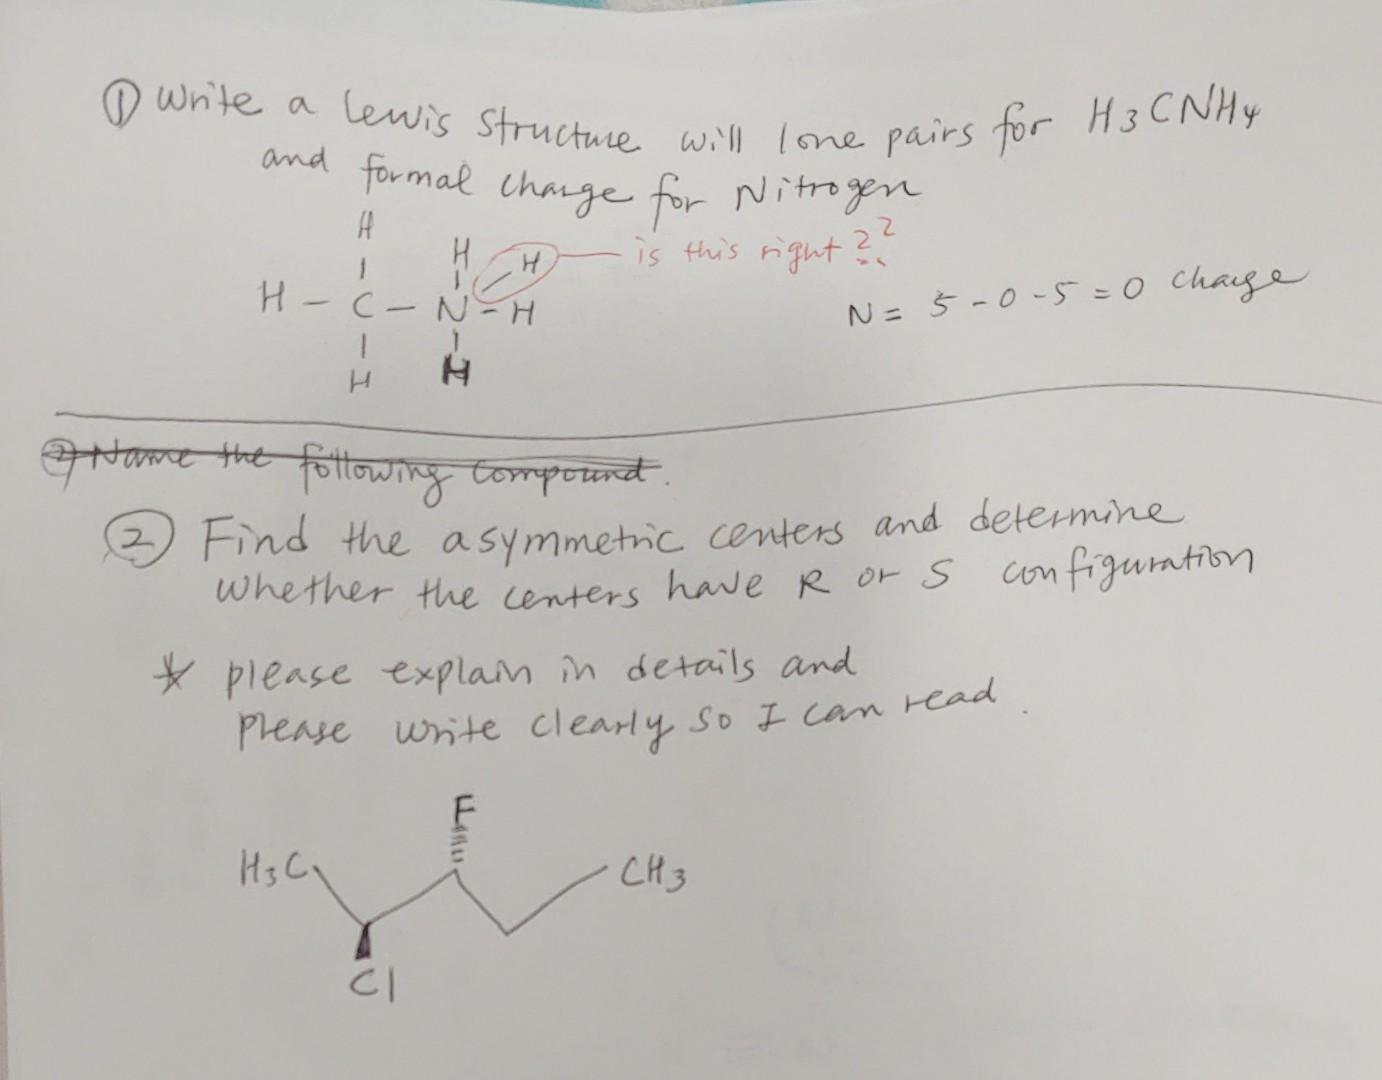 ① Write a Lewis Structure will lone pairs for H3CNH4
and formal charge for Nitrogen
H
H H — is this right??
H - C - N - H
N = 5 - 0 - 5 = 0 charge
H H
2) Name the following compound.
② Find the asymmetric centers and determine
whether the centers have R or S configuration
* please explain in details and
please write clearly so I can read.
F
H3C CH3
Cl